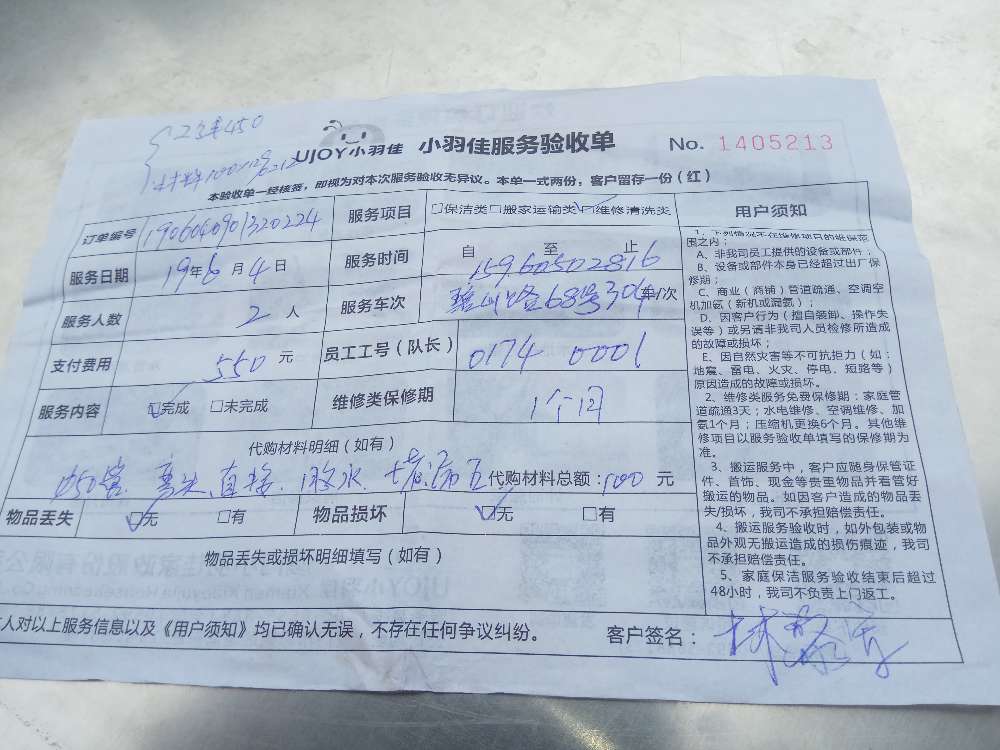 工时费450
UJOY小羽佳 小羽佳服务验收单 No. 1405213
本验收单一经核签，即视为对本次服务验收无异议。本单一式两份，客户留存一份（红）
订单编号 1906040901320224 服务项目 □保洁类□搬家运输类☑维修清洗类
服务日期 19年6月4日 服务时间 自 至 止
15960502816
服务人数 2人 服务车次 68号304 车/次
支付费用 550元 员工工号（队长） 0174 0001
服务内容 ☑完成 □未完成 维修类保修期 1个月
代购材料明细（如有）
弯头、直接、胶水、 代购材料总额：100元
物品丢失 ☑无 □有 物品损坏 ☑无 □有
物品丢失或损坏明细填写（如有）
人对以上服务信息以及《用户须知》均已确认无误，不存在任何争议纠纷。 客户签名：
用户须知
1、下列情况不在维修项目的维保范
围之内；
A、非我司员工提供的设备或部件；
B、设备或部件本身已经超过出厂保
修期；
C、商业（商铺）管道疏通、空调空
机加氨（新机或漏氨）；
D、因客户行为（擅自装卸、操作失
误等）或另请非我司人员检修所造成
的故障或损坏；
E、因自然灾害等不可抗拒力（如：
地震、雷电、火灾、停电、短路等）
原因造成的故障或损坏。
2、维修类服务免费保修期：家庭管
道疏通3天；水电维修、空调维修、加
氨1个月；压缩机更换6个月。其他维
修项目以服务验收单填写的保修期为
准。
3、搬运服务中，客户应随身保管证
件、首饰、现金等贵重物品并看管好
搬运的物品。如因客户造成的物品丢
失/损坏，我司不承担赔偿责任。
4、搬运服务验收时，如外包装或物
品外观无搬运造成的损伤痕迹，我司
不承担赔偿责任。
5、家庭保洁服务验收结束后超过
48小时，我司不负责上门返工。